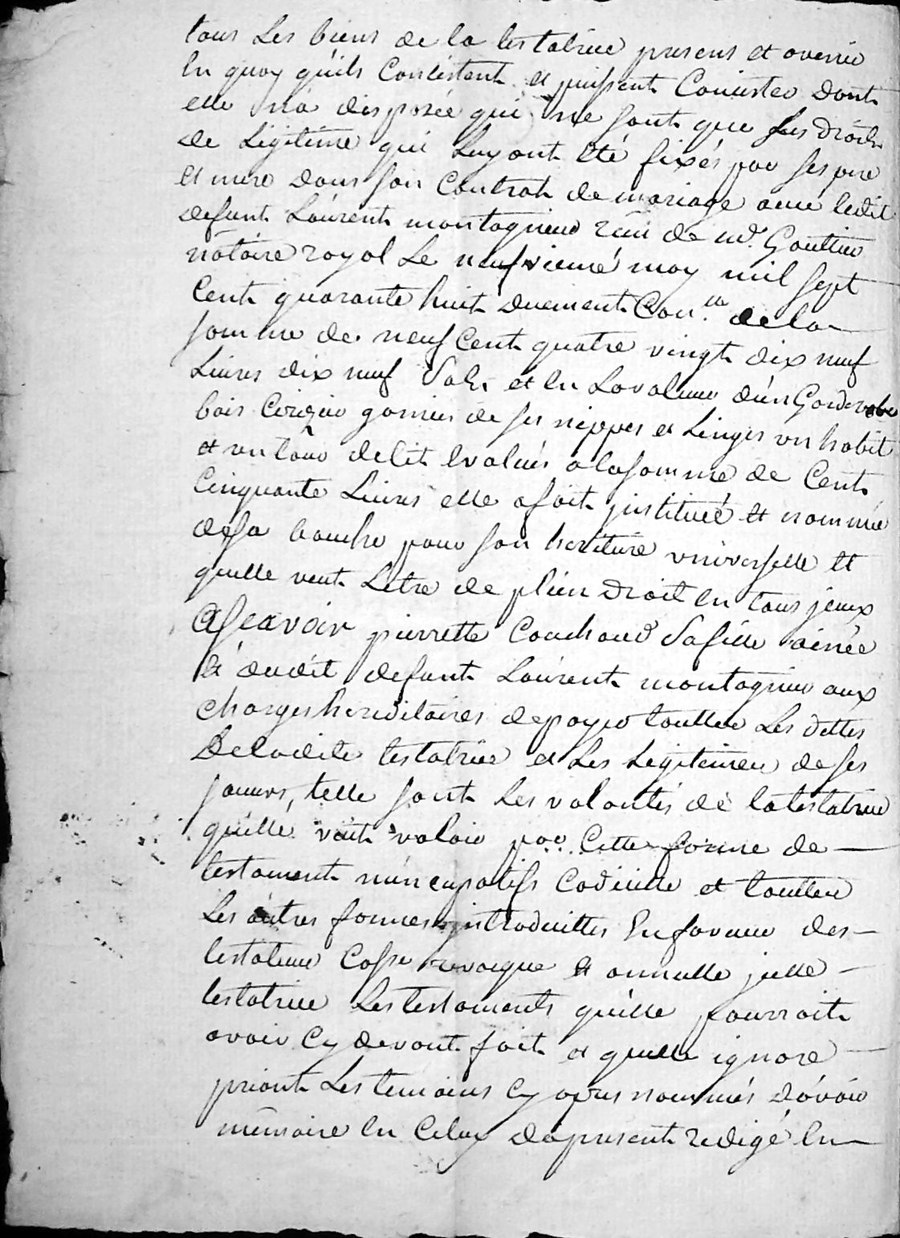 tous Les biens de la testatrice presens et avenir
En quoy quils Consistent et puissent Consister dont
elle n'a disposée qui ne sont que ses droits
de Légitime qui Luy ont été fixés par ses pere
et mere dans son Contrat de mariage avec ledit
defunt Laurent montagnieu recu de me. Gaultier
notaire royal Le neufvieme may mil sept
Cent quarante huit duement Con.lé de la
somme de neuf Cent quatre vingt dix neuf
Livres dix neuf Sols et en La valeur d'un Garderobe
bois Cerizier garnier de ses nippes et Linges un habit
et un tour de Lit évalués a la somme de Cent
Cinquante Livres elle a fait jnstitué et nommée
de sa bouche pour son heritiere universelle et
quelle veut Letre de plein droit en tous jceux
asçavoir pierrette Couchoud Sa fille ainée
et dudit defunt Laurent montagnieu aux
Charges hereditaires de payer touttes Les dettes
De ladite testatrice et Les Legitimes de ses
soeurs, telle sont Les volontés de la testatrice
quelle veut valoir par Cette forme de
testament nuncupatifs Codicille et touttes
Les autres formes jntroduittes En faveur des
testateurs Casse revoque et annulle jcelle
testatrice Les testaments quelle pourroit
avoir Cy devant fait et quelle ignore
priant Les temoins Cy apres nommés d'avoir
mémoire en Celuy du present redigé En